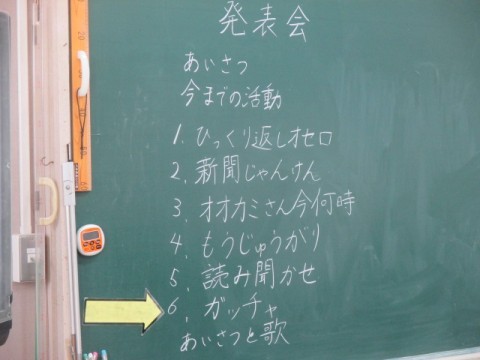 発表会
あいさつ
今までの活動
1. ひっくり返しオセロ
2. 新聞じゃんけん
3. オオカミさん今何時
4. もうじゅうがり
5. 読み聞かせ
6. ガッチャ
あいさつと歌